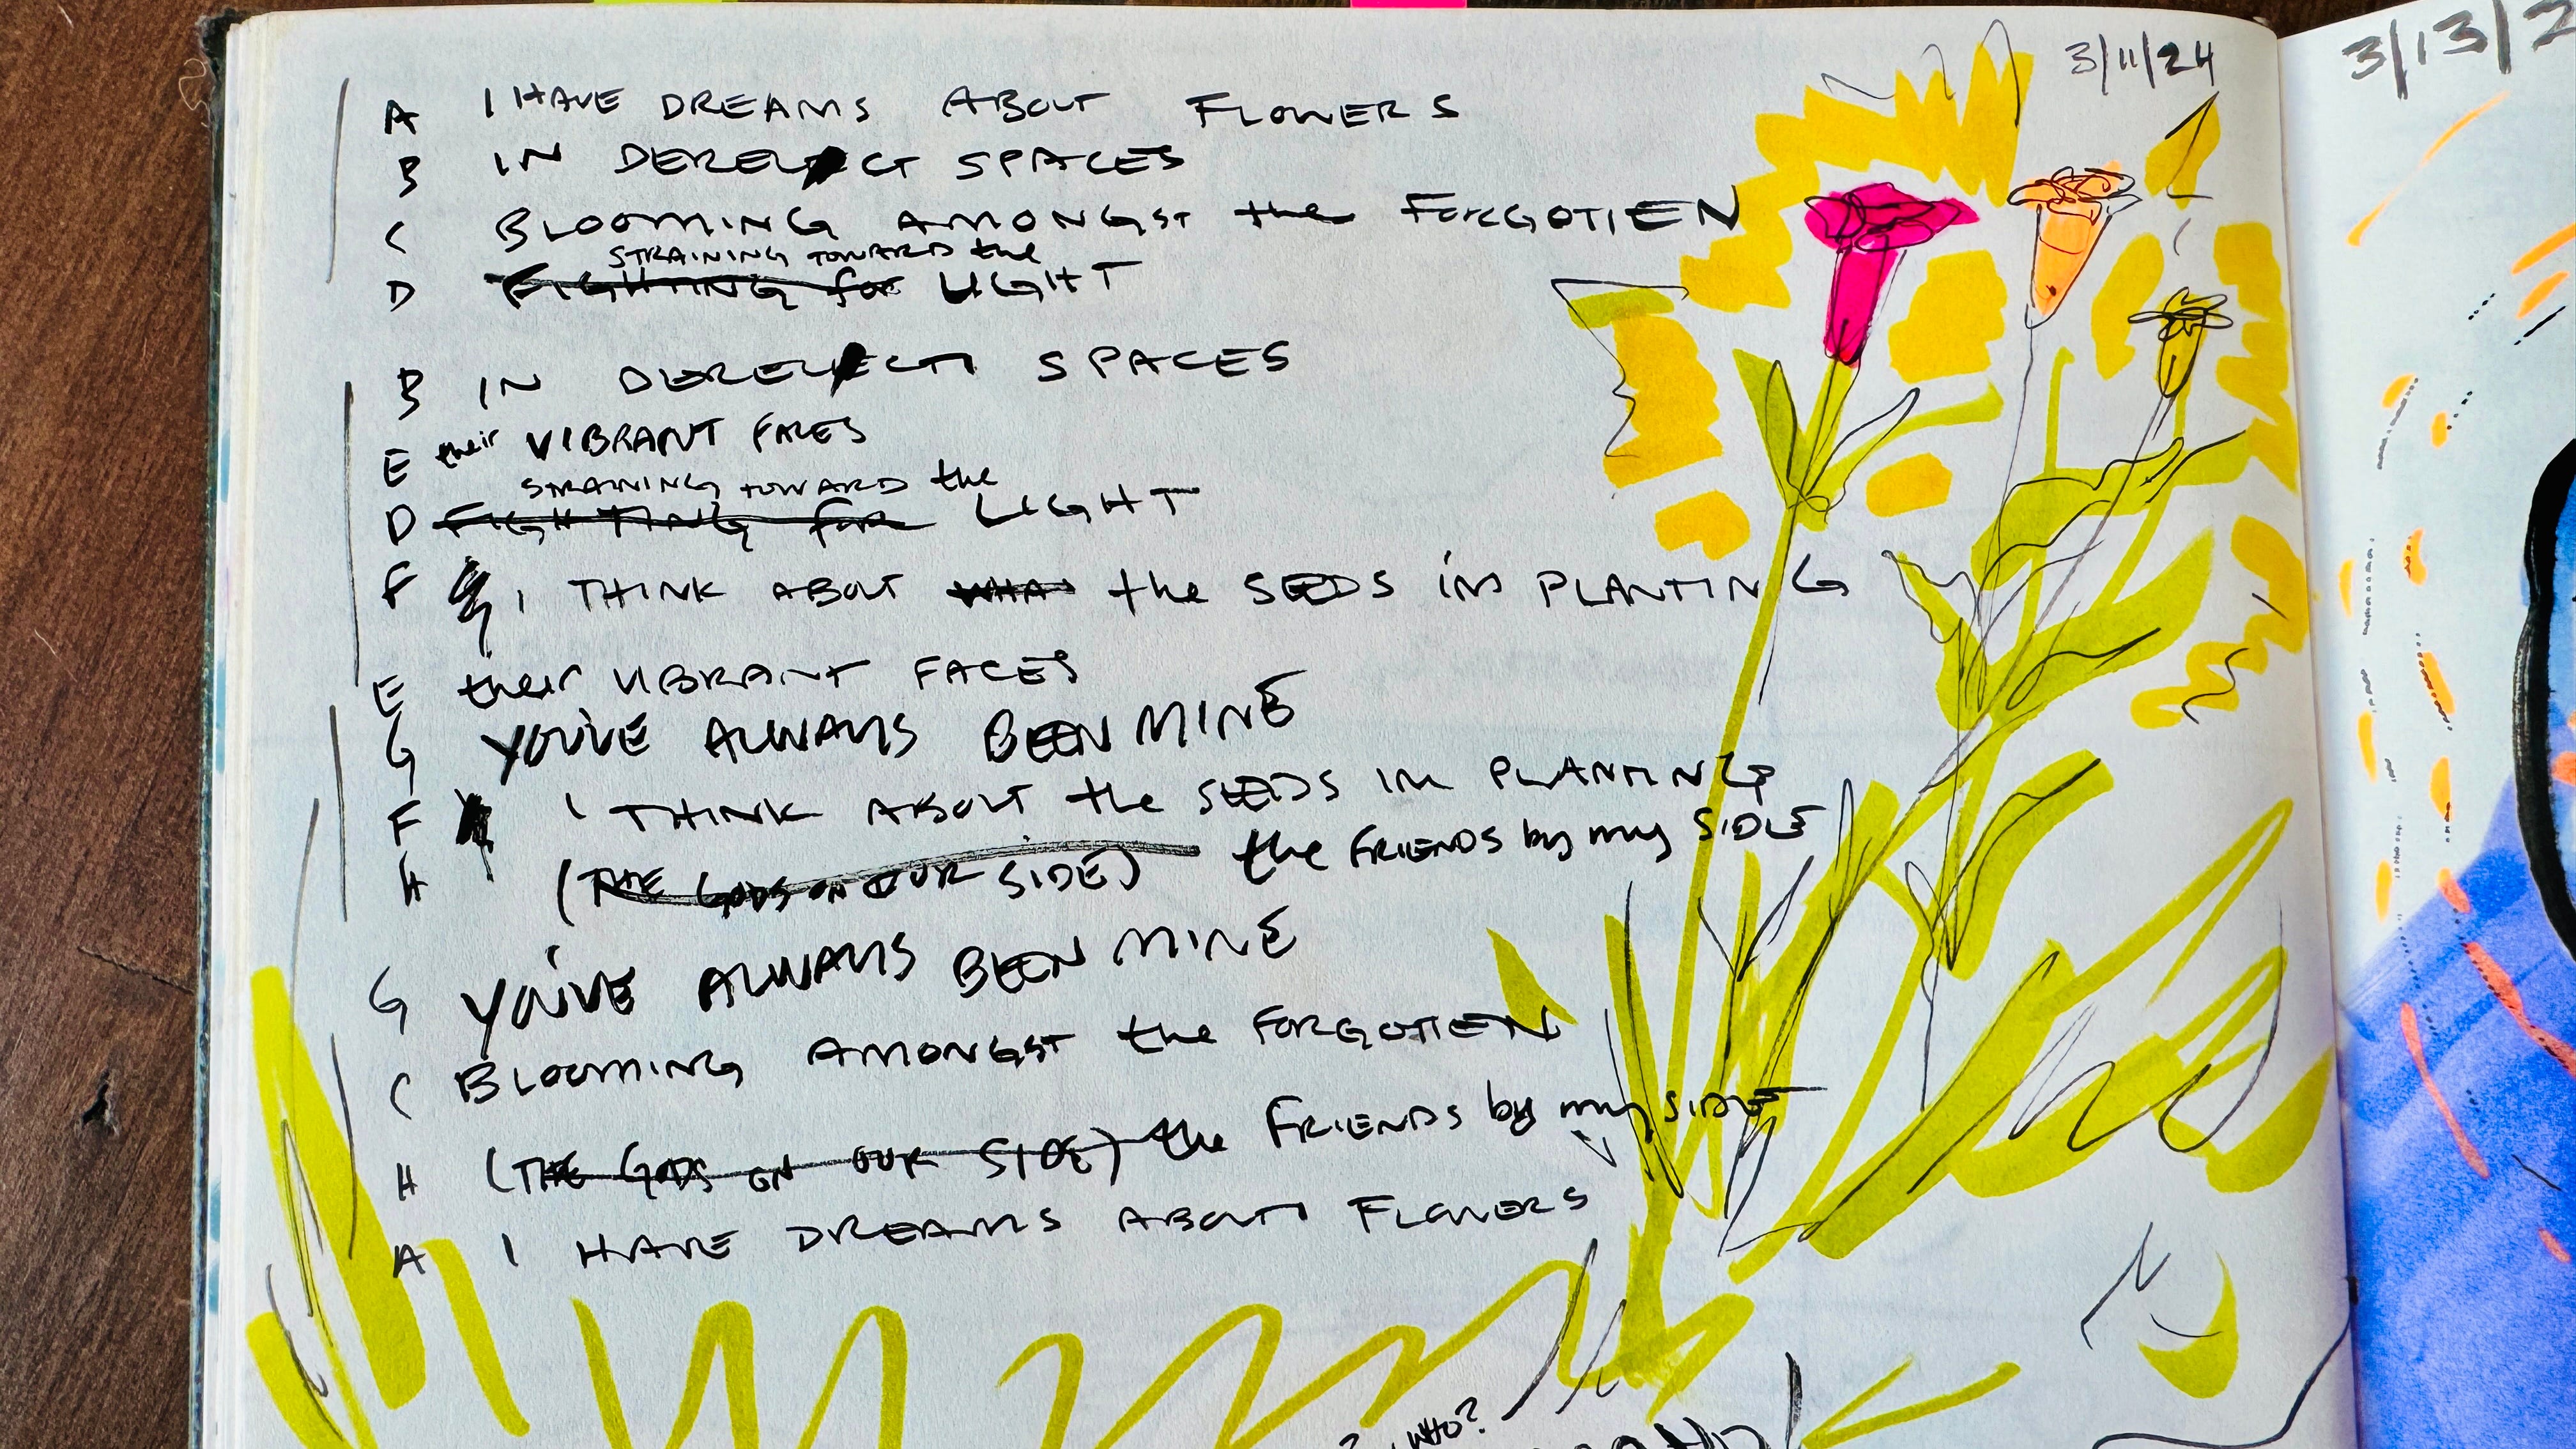 3/11/24
A I HAVE DREAMS ABOUT FLOWERS
B IN DERELICT SPACES
C BLOOMING AMONGST the FORGOTTEN
STRAINING TOWARD the
D FIGHTING for LIGHT
B IN DERELICT SPACES
E their VIBRANT FACES
STRAINING TOWARD the
D FIGHTING for LIGHT
F I THINK ABOUT WHAT the SEEDS im PLANTING
E their VIBRANT FACES
G YOU'VE ALWAYS BEEN MINE
F I THINK ABOUT the SEEDS im PLANTING
H (THE GODS ON OUR SIDE) the FRIENDS by my SIDE
G YOU'VE ALWAYS BEEN MINE
C BLOOMING AMONGST the FORGOTTEN
H (THE GODS ON OUR SIDE) the FRIENDS by my SIDE
A I HAVE DREAMS ABOUT FLOWERS
? WHO?
3/13/2